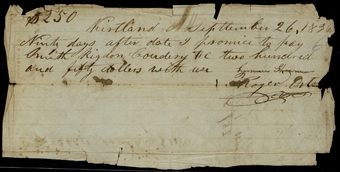 $250 Kirtland September 26, 183
Ninty days after date I promice to pay
Smith Rigdon Cowdery & C two hundred
and fifty dollars with use
Roger